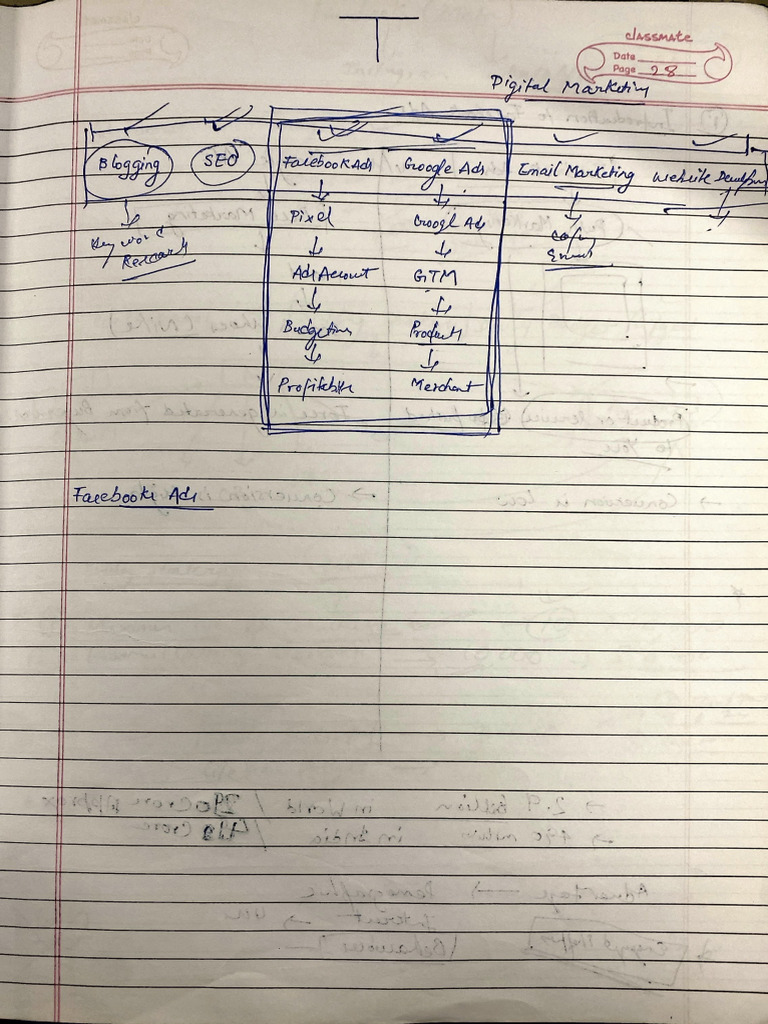 classmate
Date
Page 28
Digital Marketing
Blogging SEO Facebook Ads Google Ads Email Marketing Website
Pixel Googl Ads
Keyword Copy
Research Email
Ads Account GTM
Budgeting Product
Profitable Merchant
Facebook Ads